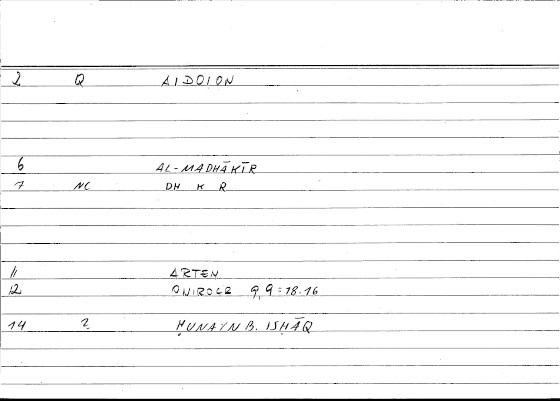 2 Q AIDOION
6 AL-MADHĀKĪR
7 NC DH K R
11 ARTEM
12 ONIROCR 9,9 = 18.16
14 2 ḤUNAYN B. ISḤĀQ